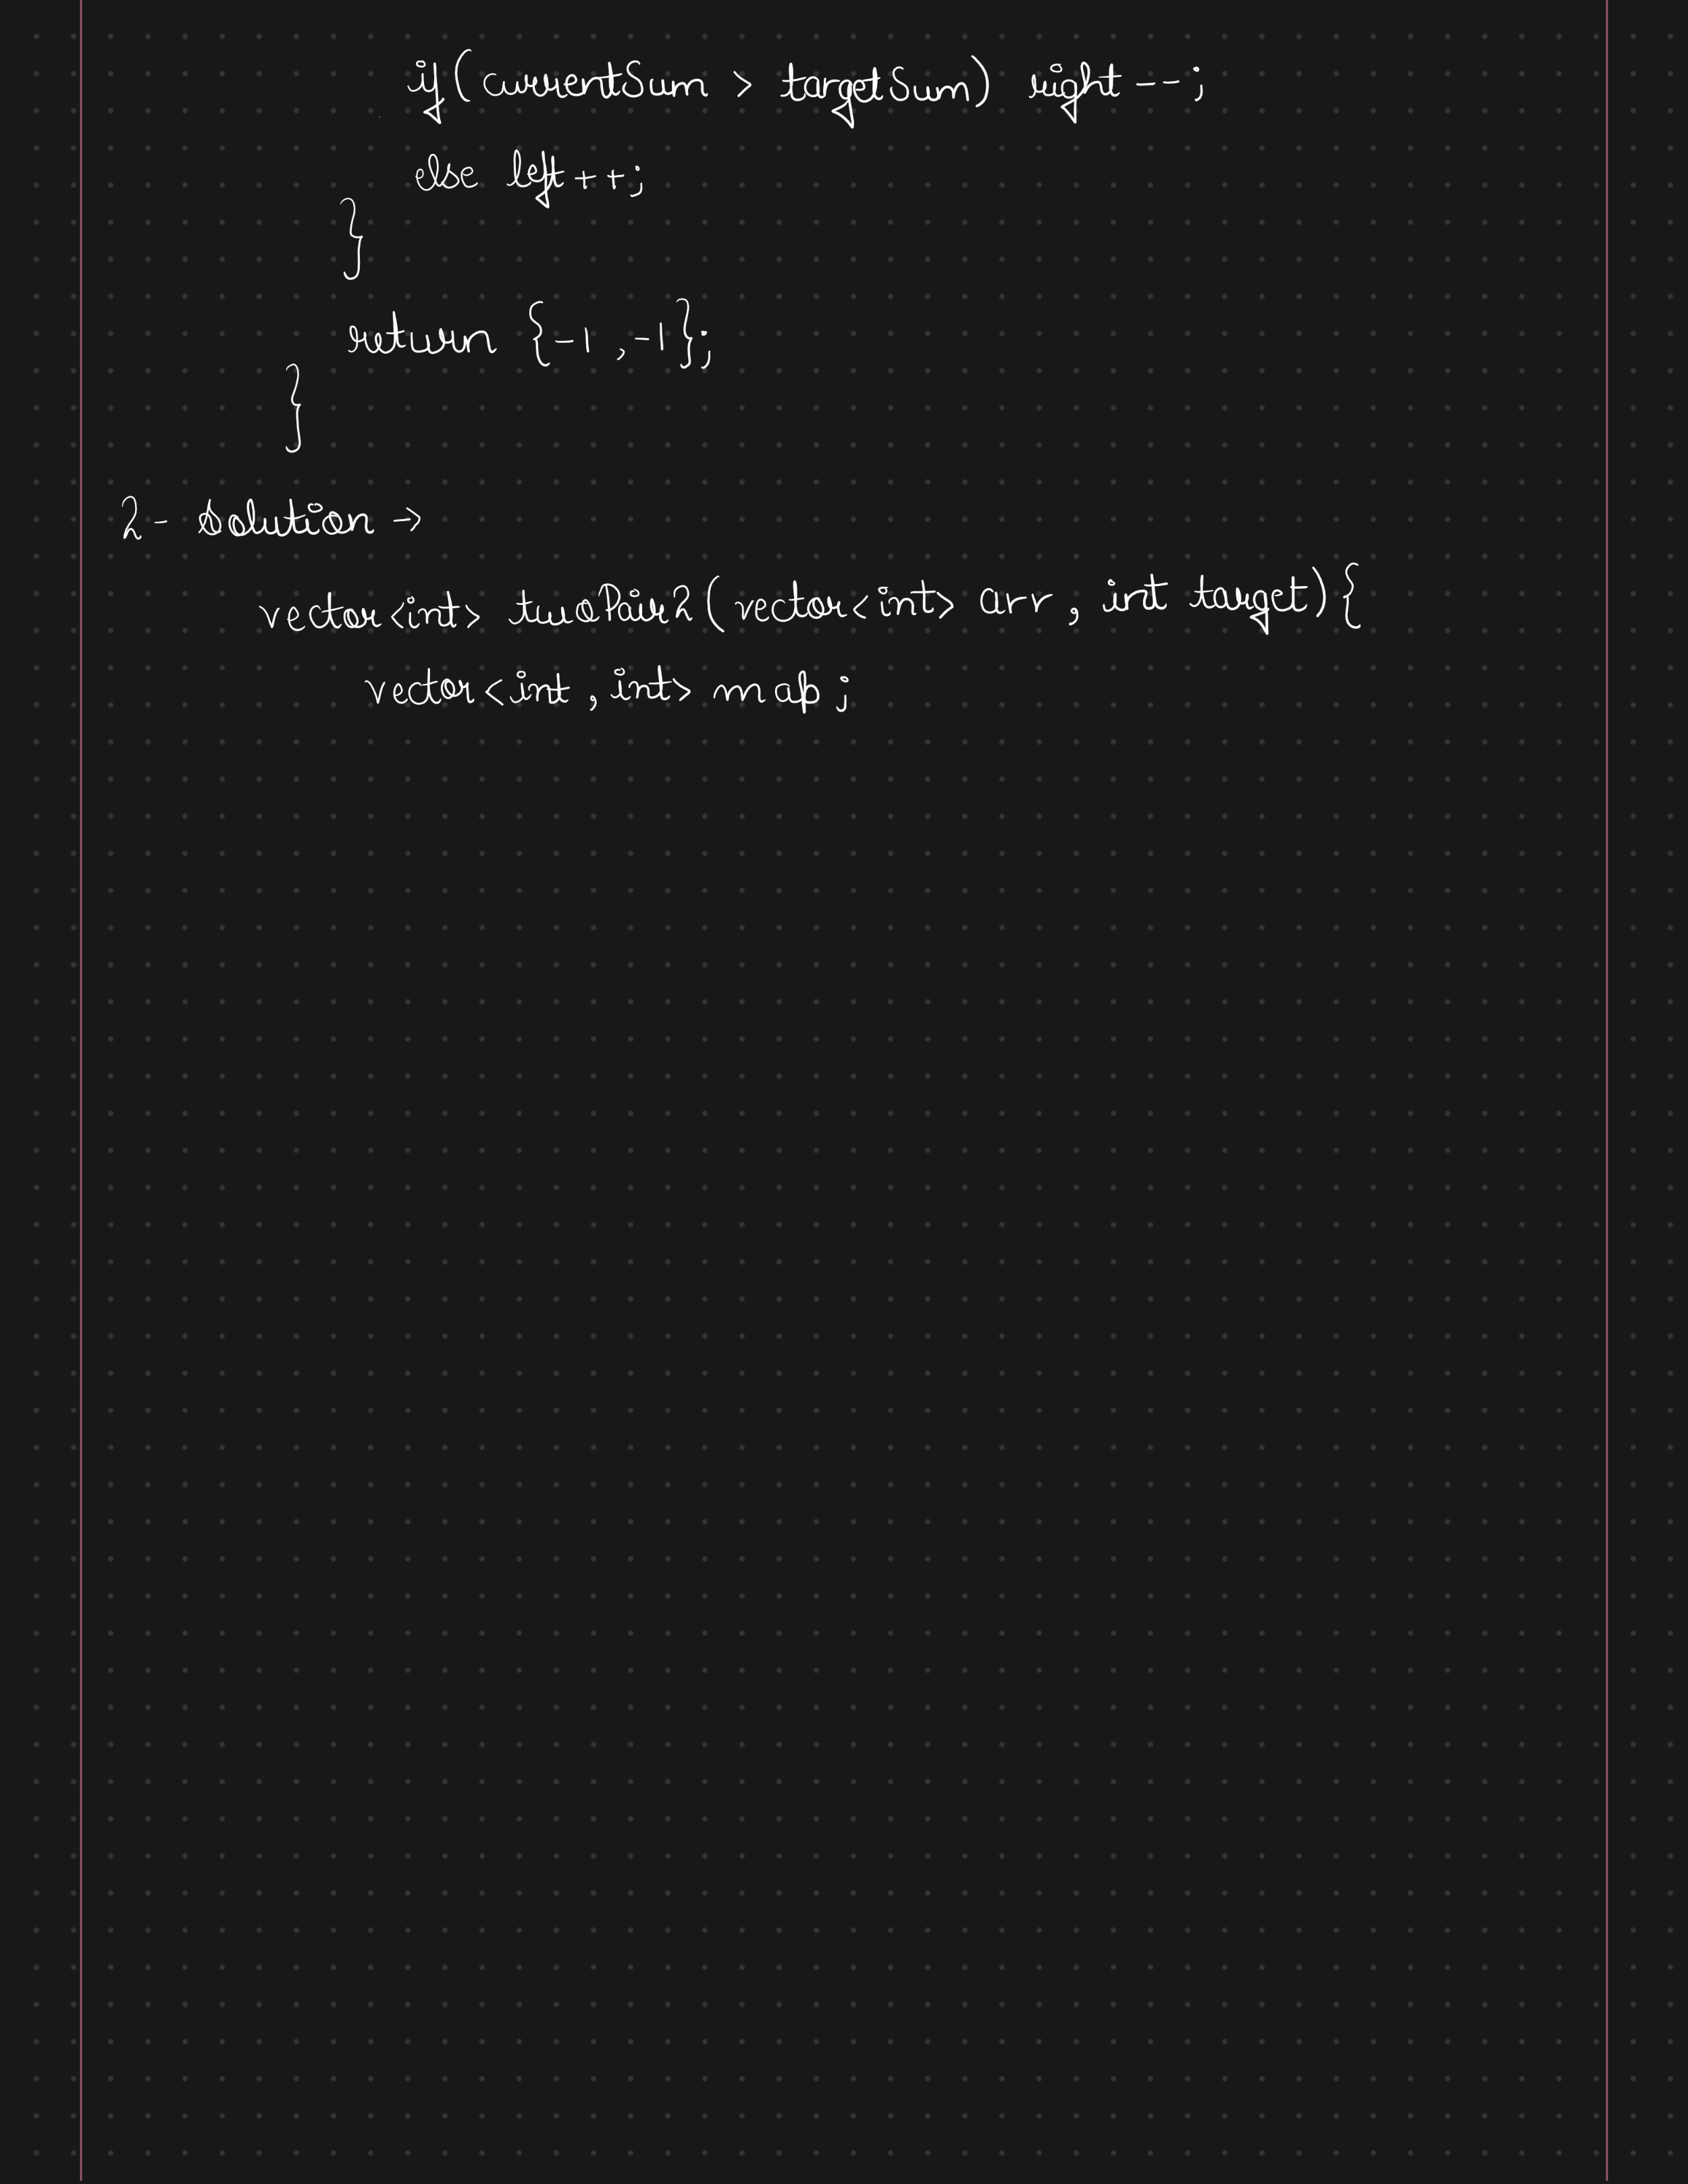 if(currentSum > targetSum) right--;
else left++;
}
return {-1,-1};
}
2- Solution →
vector<int> twoPair2(vector<int> arr, int target){
vector<int, int> map;